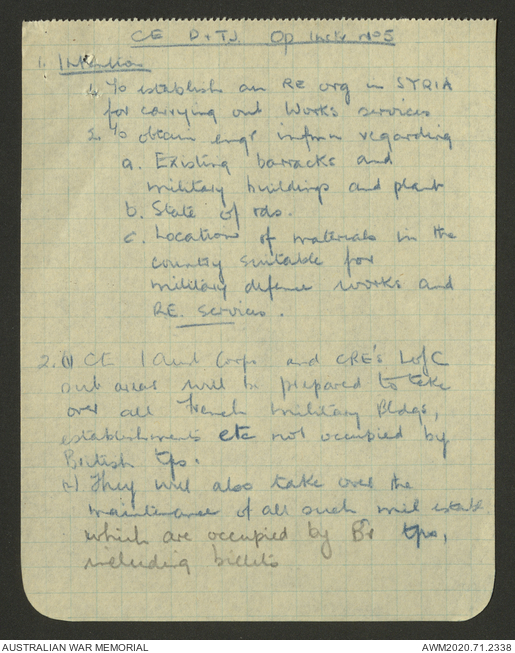 CE P+TJ. Op Instr No 5
1. Intention
1. To establish an RE org in SYRIA
for carrying out Works services
2. To obtain engr infmn regarding
a. Existing barracks and
military buildings and plant
b. State of rds.
c. Location of materials in the
country suitable for
military defence works and
RE. Services.
2. (1) CE 1 Aust Corps and CRE's LofC
sub areas will be prepared to take
over all French Military Bldgs,
establishments etc not occupied by
British tps.
(2) They will also take over the
maintenance of all such mil estabs
which are occupied by Br tps,
including billets
AUSTRALIAN WAR MEMORIAL
AWM2020.71.2338